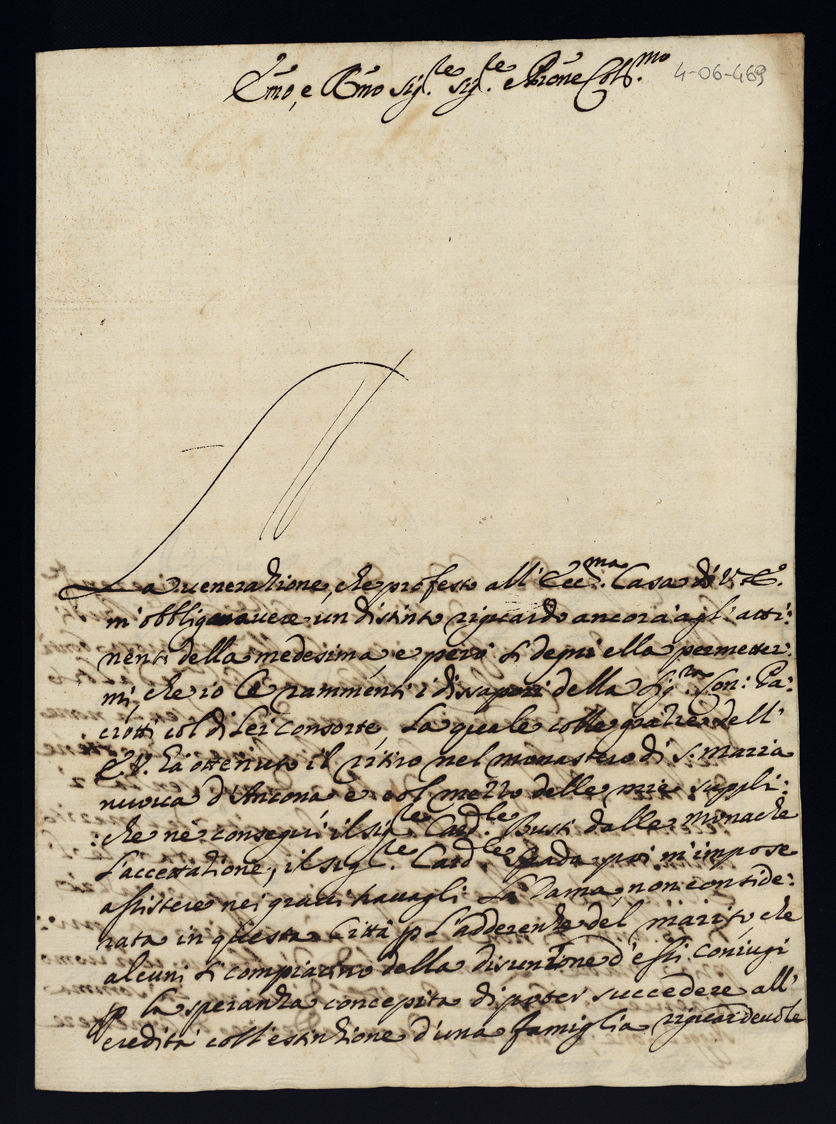 Emo, e Rmo Sig.re Sig.re e Prone Col.mo
4-06-469
La venerazione, che professo all' Ecc.ma Casa di V. E.
m'obbliga avere un distinto riguardo ancora agl' atti:
nenti della medesima, e però si degni ella permetter:
mi, che io Le rammenti i dissapori della Sig.ra Con:
crotti col di Lei consorte, La quale colle grazie dell'
E. V. hà ottenuto il ritiro nel monastero di S. Maria
nuova d'Ancona, e col mezzo delle mie suppli:
:che ne conseguì il Sig.re Card.le Bussi dalle Monache
l'accettazione, il Sig.re Card.le Spada poi m'impose
assistere nei gravi travagli La Dama, non conside:
rata in questa Città p l'aderenze del marito, che
alcuni si compiacino della disunione d'essi coniugi
p la speranza concepita di poter succedere all'
eredità coll'estinzione d'una famiglia riguardevole